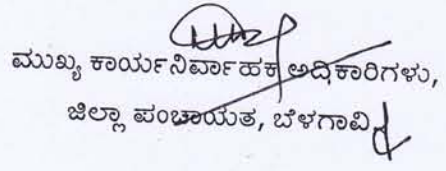 ಮುಖ್ಯ ಕಾರ್ಯನಿರ್ವಾಹಕ ಅಧಿಕಾರಿಗಳು,
ಜಿಲ್ಲಾ ಪಂಚಾಯತ, ಬೆಳಗಾವಿ